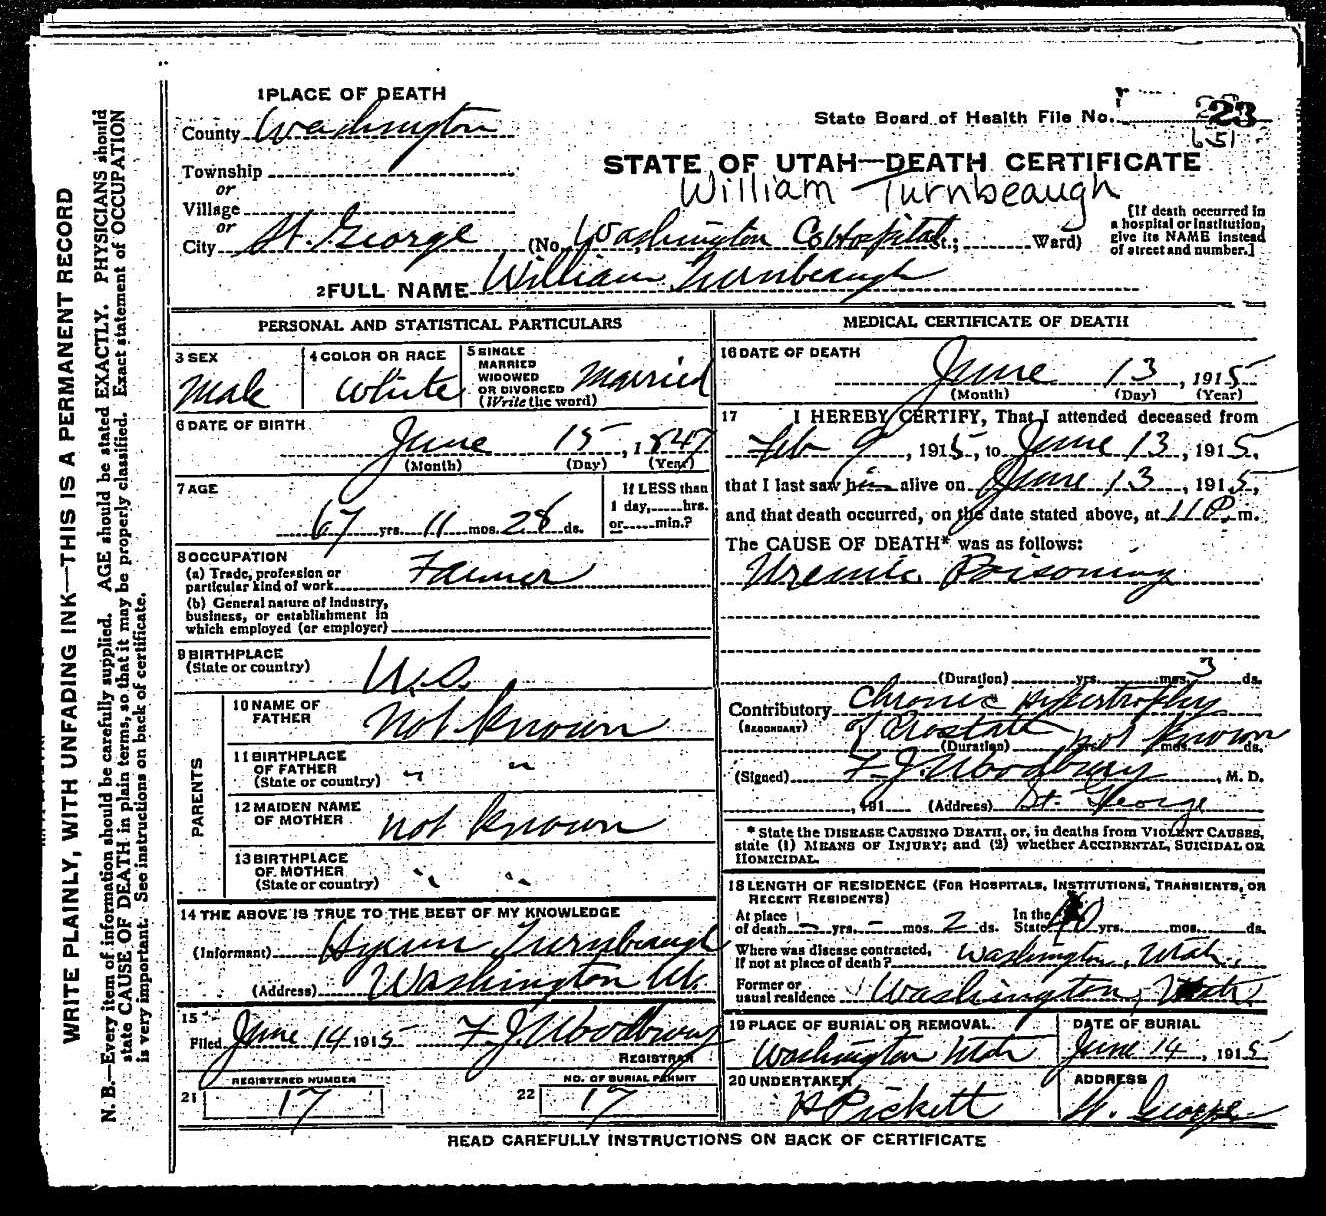 1 PLACE OF DEATH
County Washington
Township
or
Village
or
City St. George (No. Washington Co Hospital St.; Ward)
State Board of Health File No. 23
651
STATE OF UTAH—DEATH CERTIFICATE
William Turnbeaugh
[If death occurred in
a hospital or institution,
give its NAME instead
of street and number.]
2 FULL NAME William Turnbeaugh
PERSONAL AND STATISTICAL PARTICULARS
3 SEX
Male
4 COLOR OR RACE
White
5 SINGLE
MARRIED
WIDOWED
OR DIVORCED
(Write the word)
Married
6 DATE OF BIRTH
June 15, 1847
(Month) (Day) (Year)
7 AGE
67 yrs. 11 mos. 28 ds.
If LESS than
1 day, hrs.
or min.?
8 OCCUPATION
(a) Trade, profession or
particular kind of work Farmer
(b) General nature of Industry,
business, or establishment in
which employed (or employer)
9 BIRTHPLACE
(State or country) U.S.
PARENTS
10 NAME OF
FATHER not known
11 BIRTHPLACE
OF FATHER
(State or country) " "
12 MAIDEN NAME
OF MOTHER not known
13 BIRTHPLACE
OF MOTHER
(State or country) " "
14 THE ABOVE IS TRUE TO THE BEST OF MY KNOWLEDGE
(Informant) Hyrum Turnbeaugh
(Address) Washington Ut.
15
Filed June 14 1915 F. J. Woodbury
REGISTRAR
21 REGISTERED NUMBER
17
22 NO. OF BURIAL PERMIT
17
MEDICAL CERTIFICATE OF DEATH
16 DATE OF DEATH
June 13, 1915
(Month) (Day) (Year)
17 I HEREBY CERTIFY, That I attended deceased from
Feb 9, 1915, to June 13, 1915,
that I last saw him alive on June 13, 1915,
and that death occurred, on the date stated above, at 11 P. m.
The CAUSE OF DEATH* was as follows:
Uremic Poisoning
(Duration) yrs. mos. 3 ds.
Contributory Chronic Hypertrophy
(SECONDARY) of Prostate
(Duration) yrs. mos. ds. not known
(Signed) F. J. Woodbury, M. D.
, 191 (Address) St. George
* State the DISEASE CAUSING DEATH, or, in deaths from VIOLENT CAUSES,
state (1) MEANS OF INJURY; and (2) whether ACCIDENTAL, SUICIDAL OR
HOMICIDAL.
18 LENGTH OF RESIDENCE (FOR HOSPITALS, INSTITUTIONS, TRANSIENTS, OR
RECENT RESIDENTS)
At place
of death - yrs. - mos. 2 ds. In the
State 40 yrs. mos. ds.
Where was disease contracted,
If not at place of death? Washington, Utah.
Former or
usual residence Washington, Utah.
19 PLACE OF BURIAL OR REMOVAL
Washington Utah
DATE OF BURIAL
June 14, 1915
20 UNDERTAKER
H Pickett
ADDRESS
St. George
READ CAREFULLY INSTRUCTIONS ON BACK OF CERTIFICATE
WRITE PLAINLY, WITH UNFADING INK—THIS IS A PERMANENT RECORD
N. B.—Every item of information should be carefully supplied. AGE should be stated EXACTLY. PHYSICIANS should
state CAUSE OF DEATH in plain terms, so that it may be properly classified. Exact statement of OCCUPATION
is very important. See instructions on back of certificate.